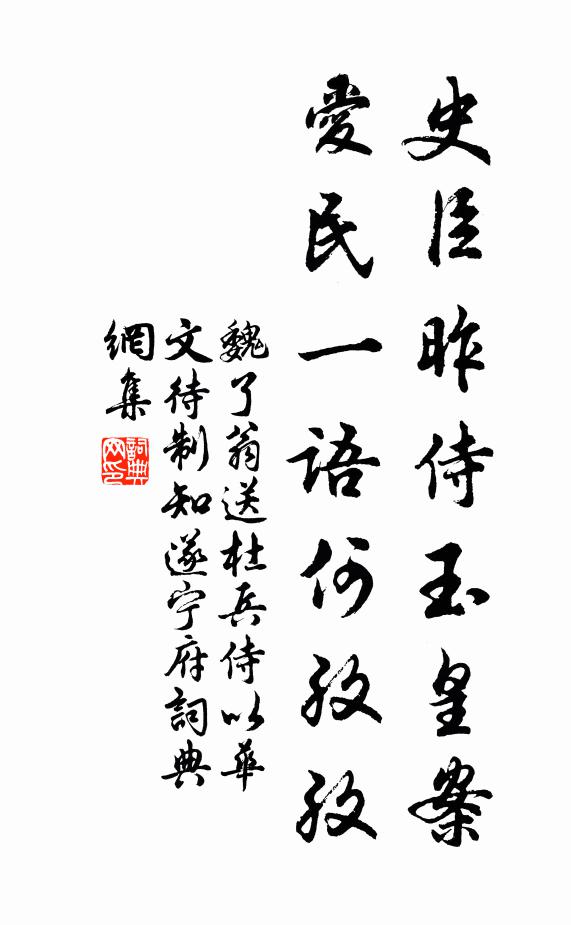 史臣昨侍玉皇案
愛民一語何孜孜
魏了翁送杜兵侍以華
文待制知遂宁府詞典
網集
詞典网印